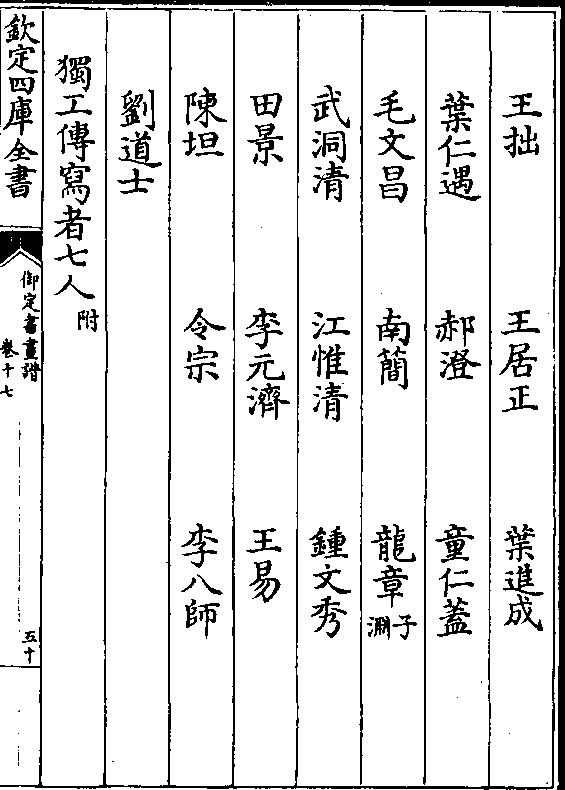 王拙　王居正　葉進成
葉仁遇　郝澄　童仁蓋
毛文昌　南簡　龍章子淵
武洞清　江惟清　鍾文秀
田景　李元濟　王易
陳坦　令宗　李八師
劉道士
獨工傳寫者七人附
欽定四庫全書
御定書畫譜
卷十七
五十